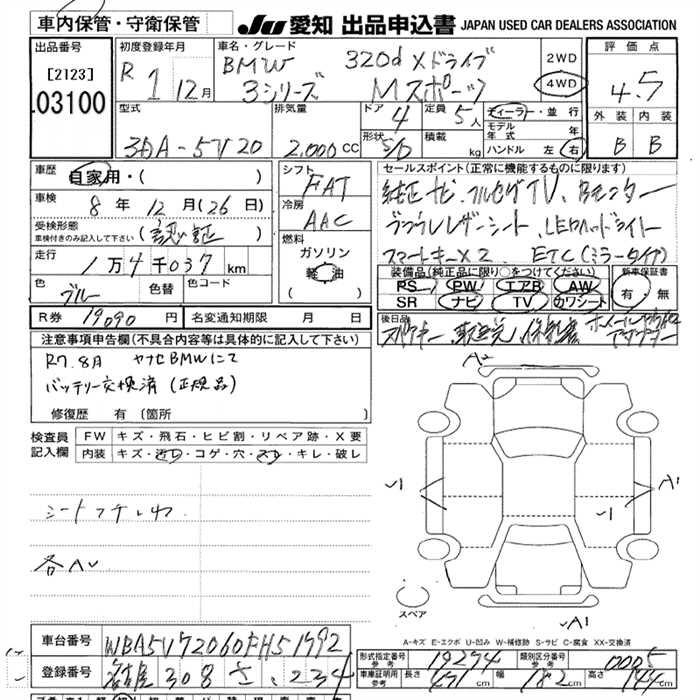 車内保管・守衛保管
JU 愛知 出品申込書 JAPAN USED CAR DEALERS ASSOCIATION
出品番号
[2123]
03100
初度登録年月
R 1 12月
車名・グレード
BMW 320d Xドライブ
3シリーズ Mスポーツ
2WD
4WD
評価点
4.5
外装 内装
B B
型式
3DA-5V20
排気量
2,000 CC
ドア 4
形状 5/D
定員 5人
積載 kg
ディーラー・並行
モデル年式 年
ハンドル 左 右
車歴 自家用・( )
車検 8年 12月(26日)
受検形態
車検付きのみ記入して下さい (認証)
走行 1万4千037 km
色 ブルー 色替 色コード
R券 19090円 名変通知期限 月 日
シフト
FAT
冷房
AAC
燃料
ガソリン
軽油
セールスポイント(正常に機能するものに限ります)
純正ナビ、フルセグTV、Bモニター
レザーシート、LEDヘッドライト
スマートキーX2 ETC(ミラータイプ)
装備品(純正品に限り○をつけてください)
PS PW エアB AW
SR ナビ TV カワシート
新車保証書
有・無
後日品
スペアキー、取説、保証書
注意事項申告欄(不具合内容等は具体的に記入して下さい)
R7.8月 ヤナセBMWにて
バッテリー交換済(正規品)
修復歴 有(箇所 )
検査員記入欄
FW キズ・飛石・ヒビ割・リペア跡・X要
内装 キズ・汚レ・コゲ・穴・スレ・キレ・破レ
各AU
A2
A1
A1
A1
スペア
A-キズ E-エクボ U-凹み W-補修跡 S-サビ C-腐食 XX-交換済
車台番号 WBA5V72060FH51992
登録番号 名古屋 308 さ ・234
形式指定番号 参考 19294
類別区分番号 参考 0005
車庫証明用 参考 長さ 471cm 幅 182cm 高さ 144cm